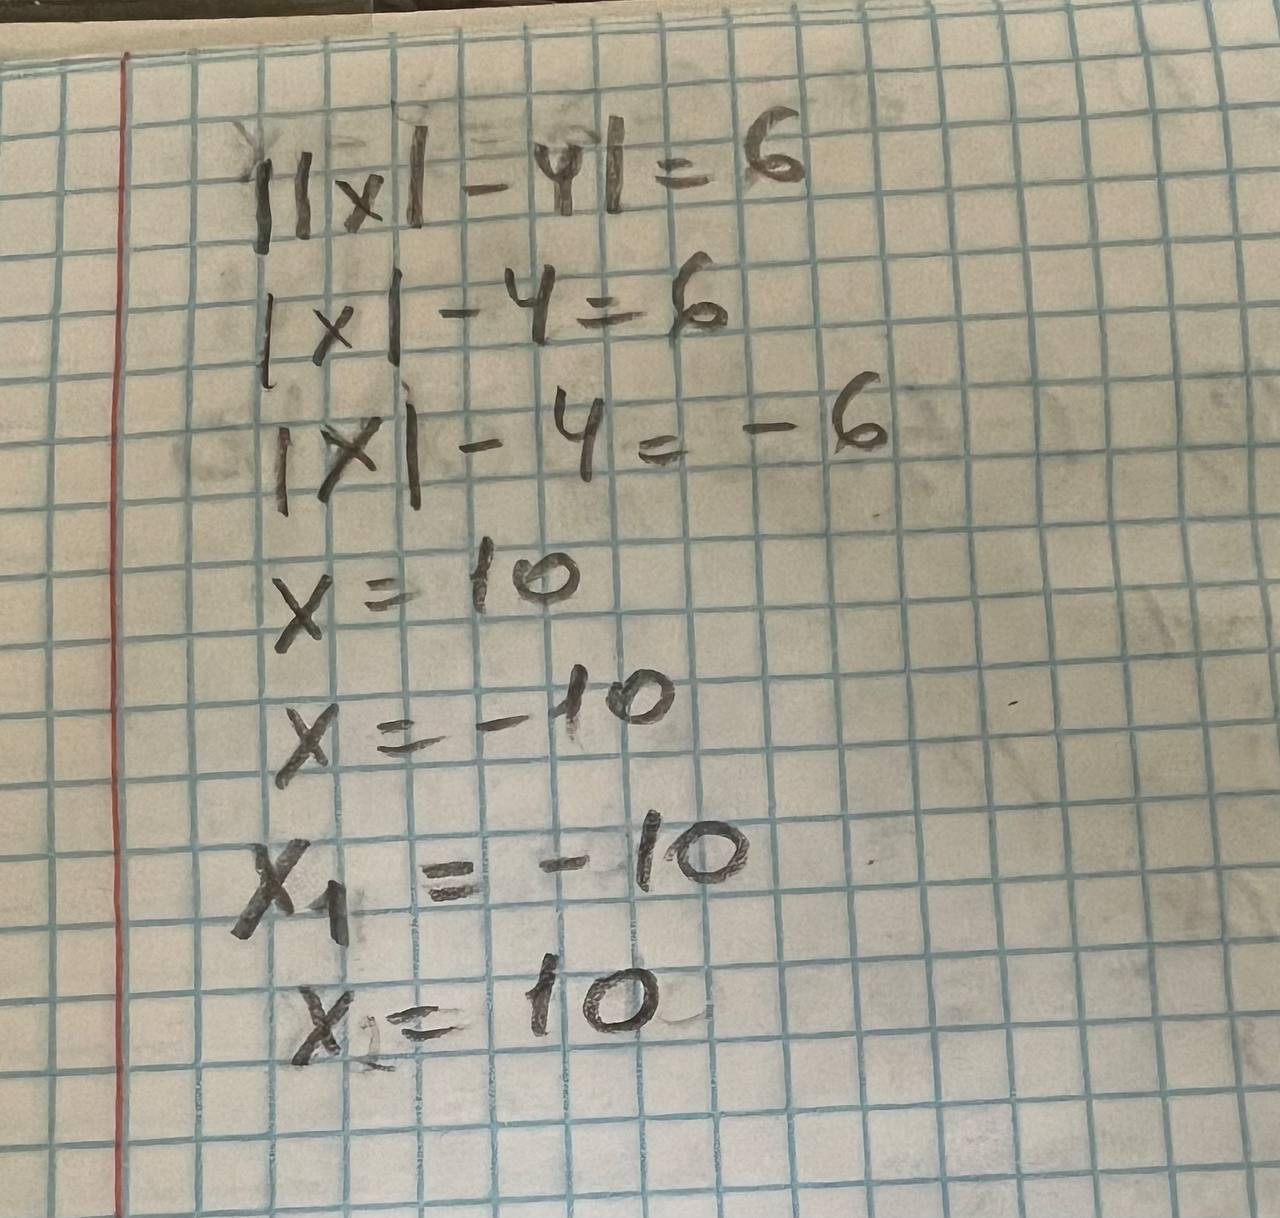 ||x| - 4| = 6
|x| - 4 = 6
|x| - 4 = - 6
x = 10
x = - 10
x₁ = - 10
x₂ = 10